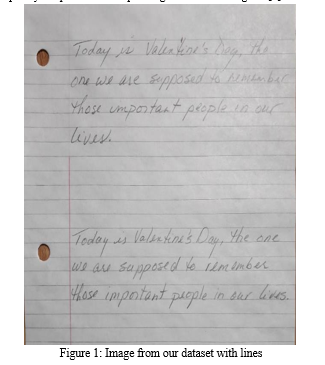 Today is Valentine's Day, the
one we are supposed to remember
those important people in our
lives.
Today is Valentine's Day, the one
we are supposed to remember
those important people in our lives.
Figure 1: Image from our dataset with lines